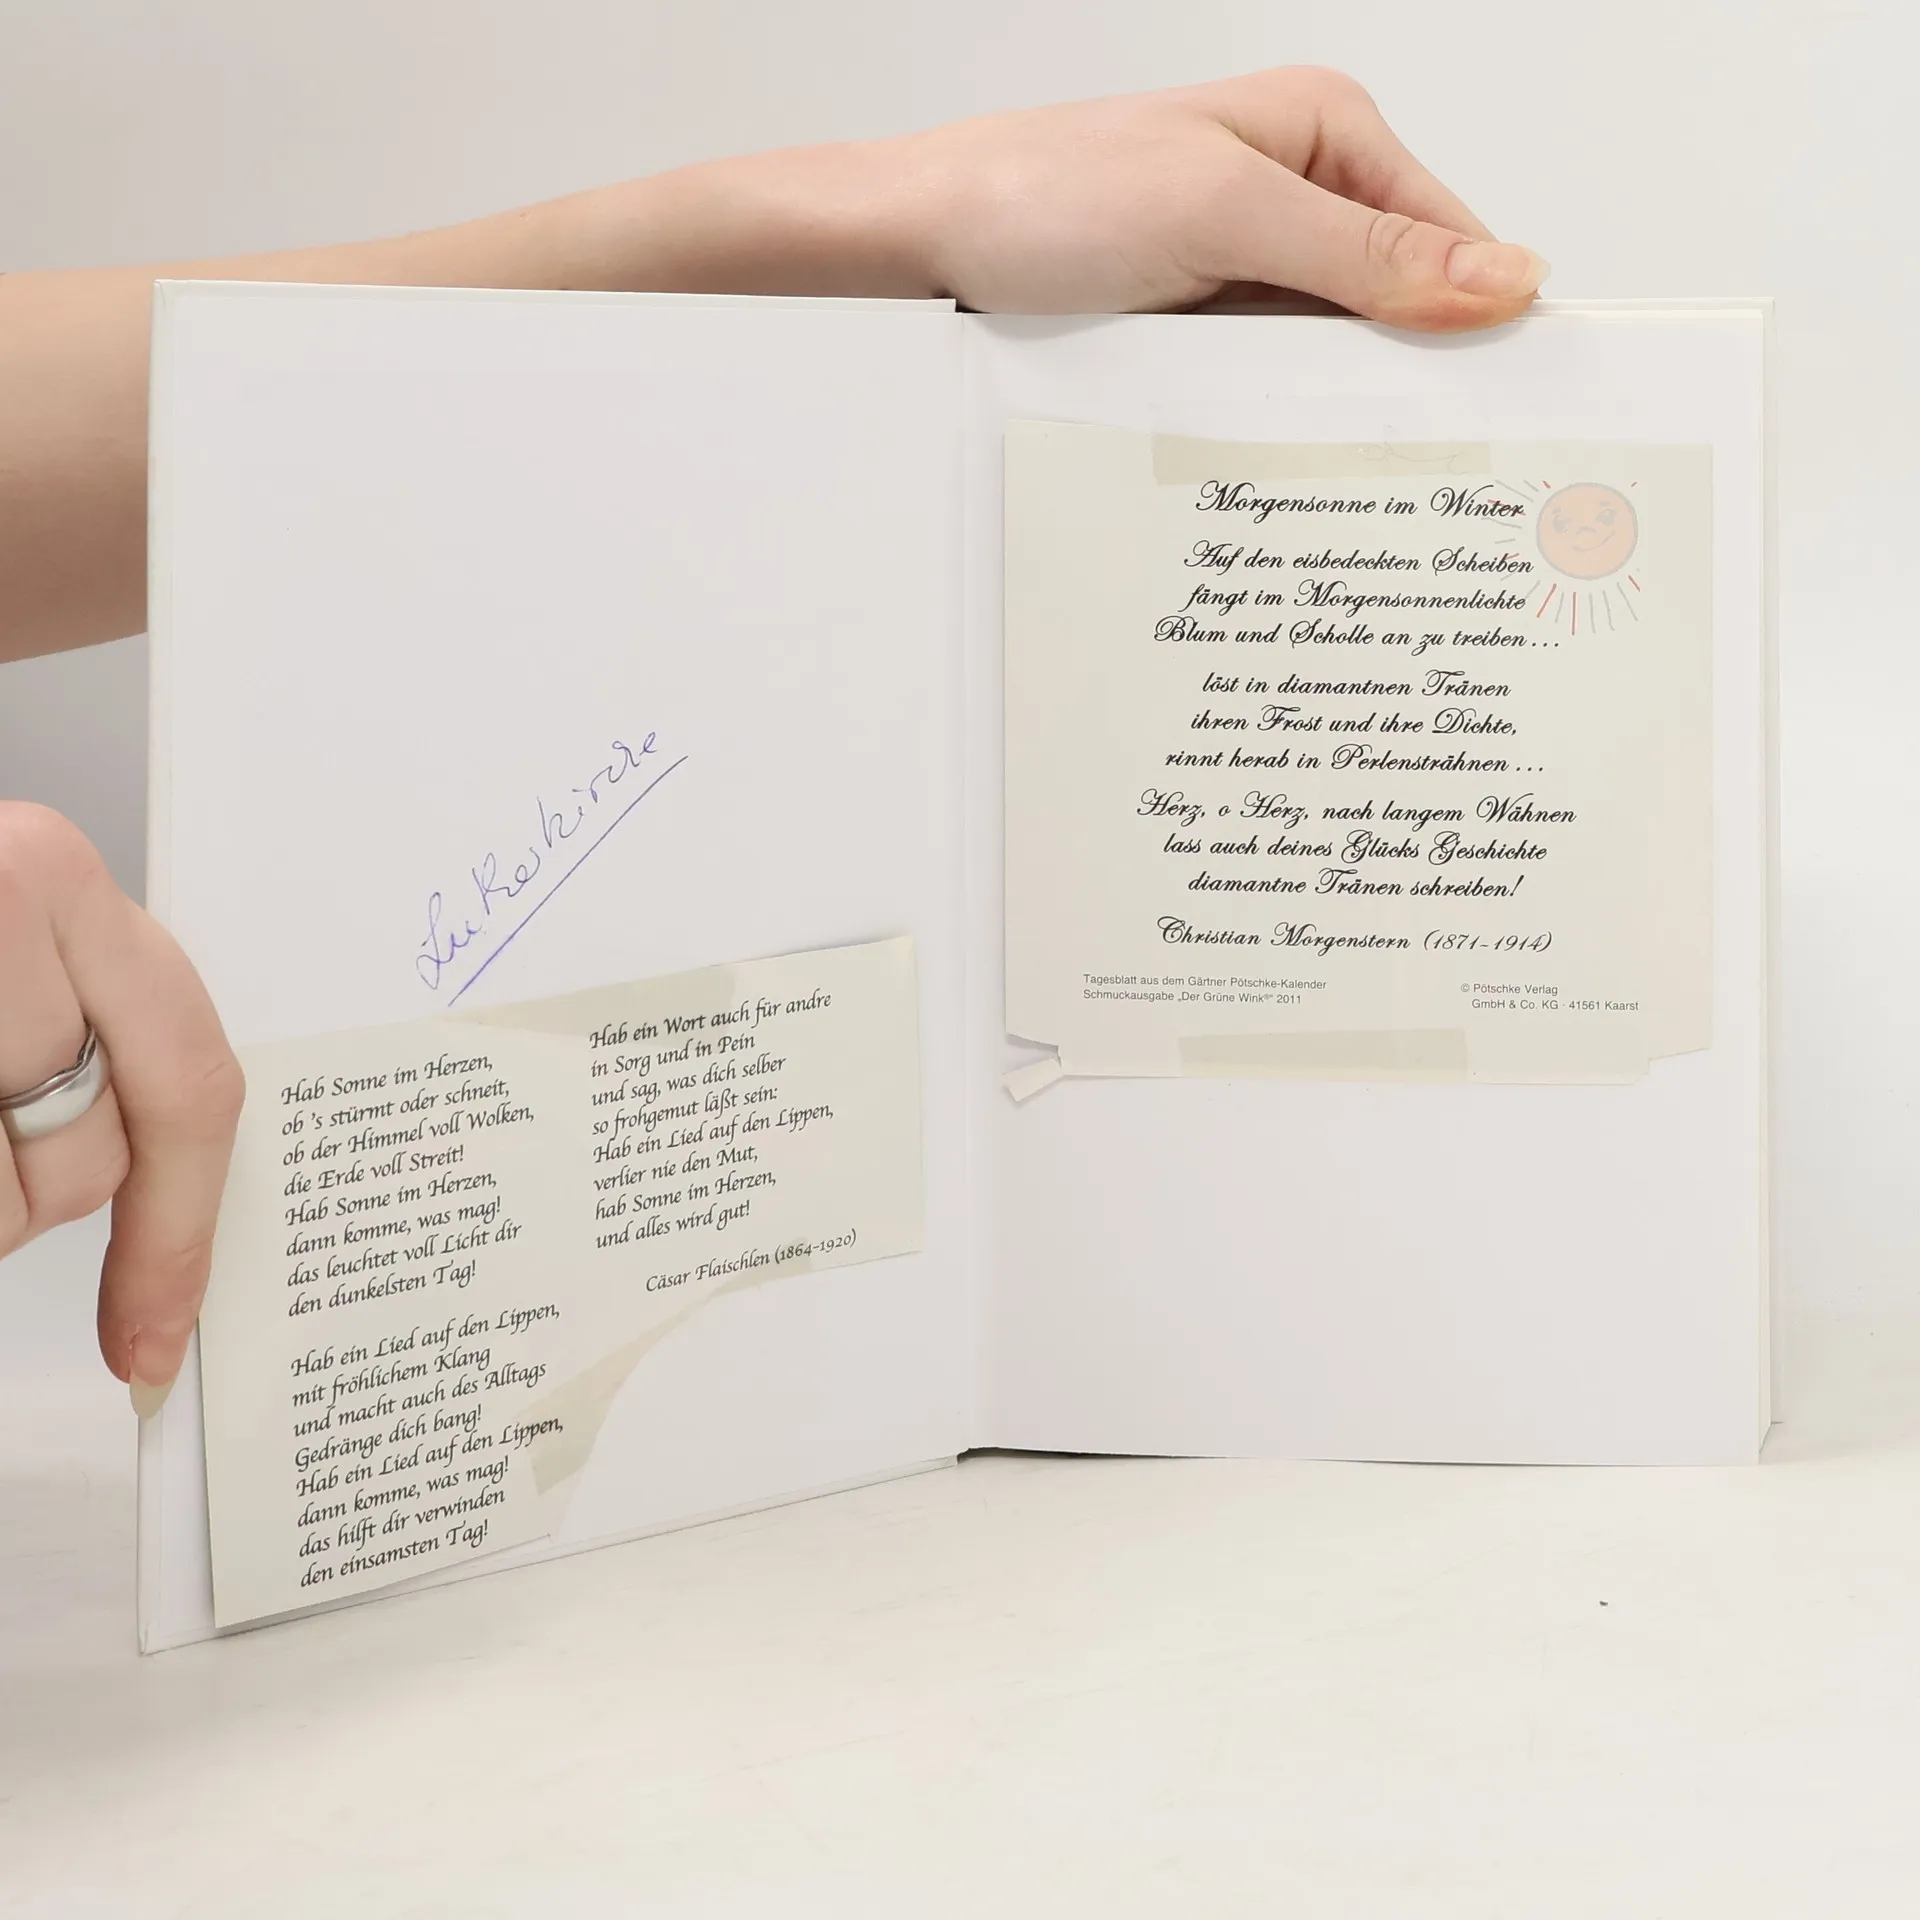 Lukaskirche
Hab Sonne im Herzen,
ob 's stürmt oder schneit,
ob der Himmel voll Wolken,
die Erde voll Streit!
Hab Sonne im Herzen,
dann komme, was mag!
das leuchtet voll Licht dir
den dunkelsten Tag!
Hab ein Lied auf den Lippen,
mit fröhlichem Klang
und macht auch des Alltags
Gedränge dich bang!
Hab ein Lied auf den Lippen,
dann komme, was mag!
das hilft dir verwinden
den einsamsten Tag!
Hab ein Wort auch für andre
in Sorg und in Pein
und sag, was dich selber
so frohgemut läßt sein:
Hab ein Lied auf den Lippen,
verlier nie den Mut,
hab Sonne im Herzen,
und alles wird gut!
Cäsar Flaischlen (1864-1920)
Morgensonne im Winter
Auf den eisbedeckten Scheiben
fängt im Morgensonnenlichte
Blum und Scholle an zu treiben...
löst in diamantnen Tränen
ihren Frost und ihre Dichte,
rinnt herab in Perlensträhnen...
Herz, o Herz, nach langem Wähnen
lass auch deines Glücks Geschichte
diamantne Tränen schreiben!
Christian Morgenstern (1871-1914)
Tagesblatt aus dem Gärtner Pötschke-Kalender
Schmuckausgabe „Der Grüne Wink®" 2011
© Pötschke Verlag
GmbH & Co. KG · 41561 Kaarst